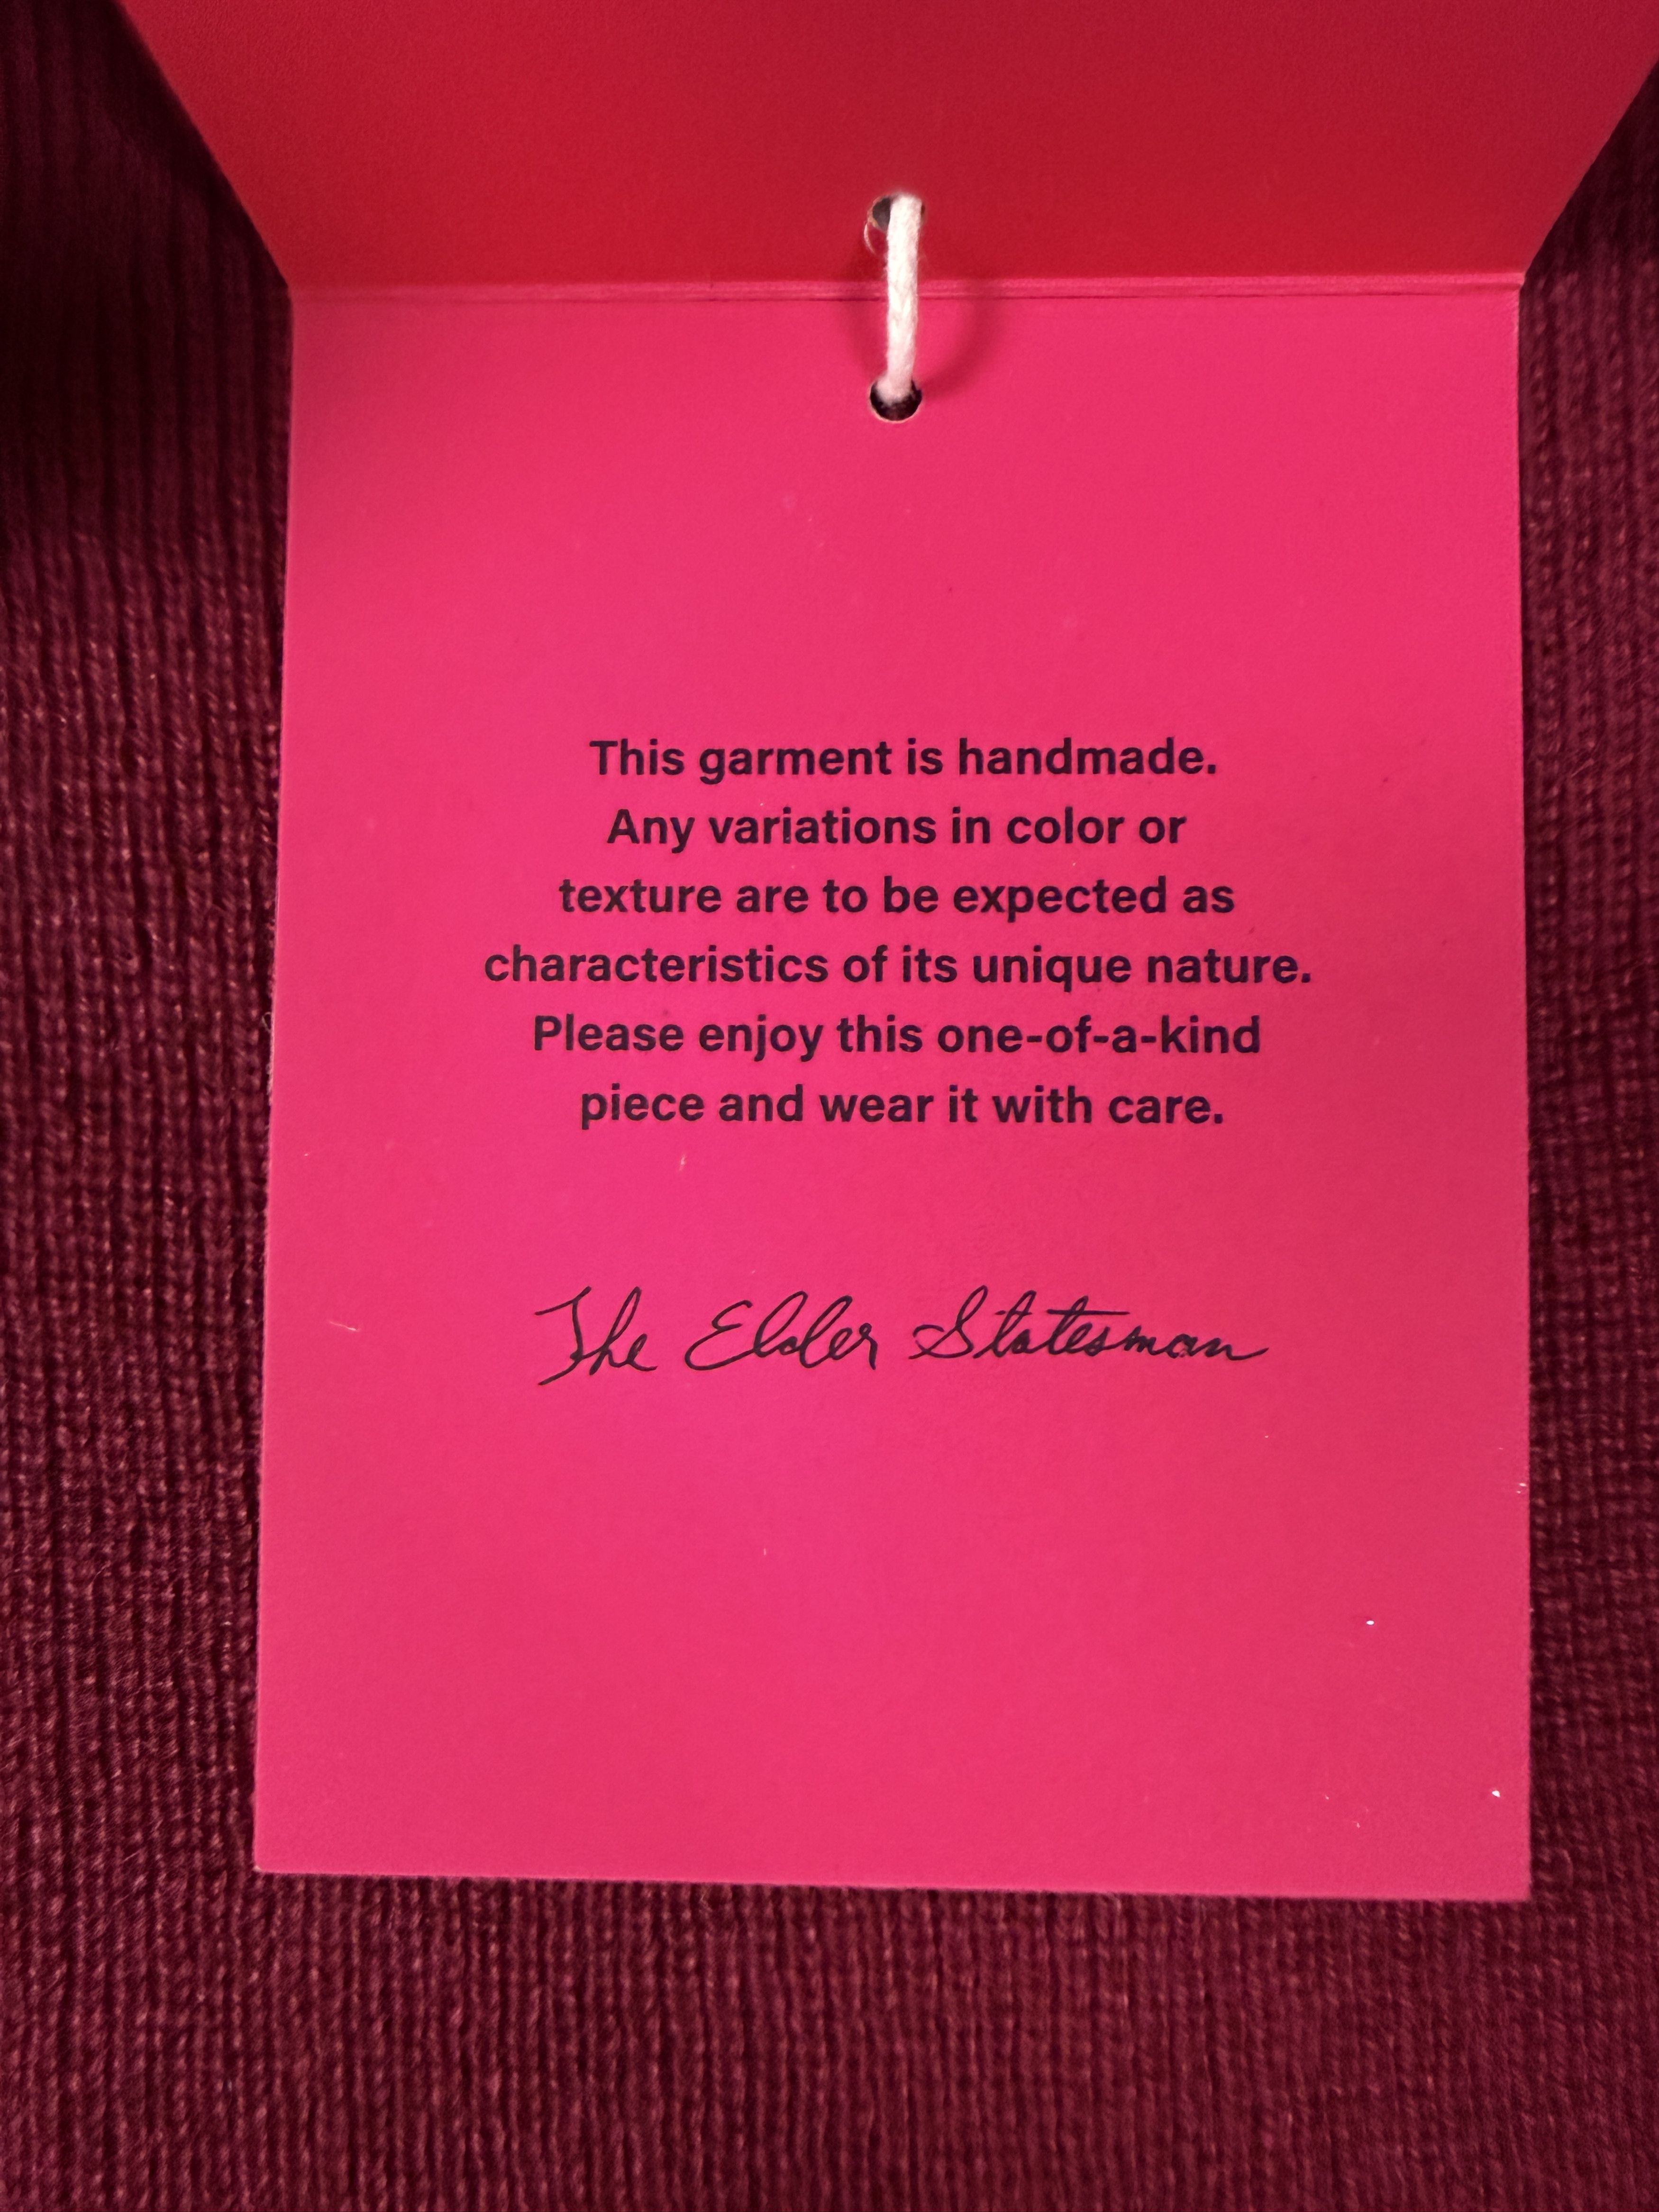 This garment is handmade.
Any variations in color or
texture are to be expected as
characteristics of its unique nature.
Please enjoy this one-of-a-kind
piece and wear it with care.
The Elder Statesman